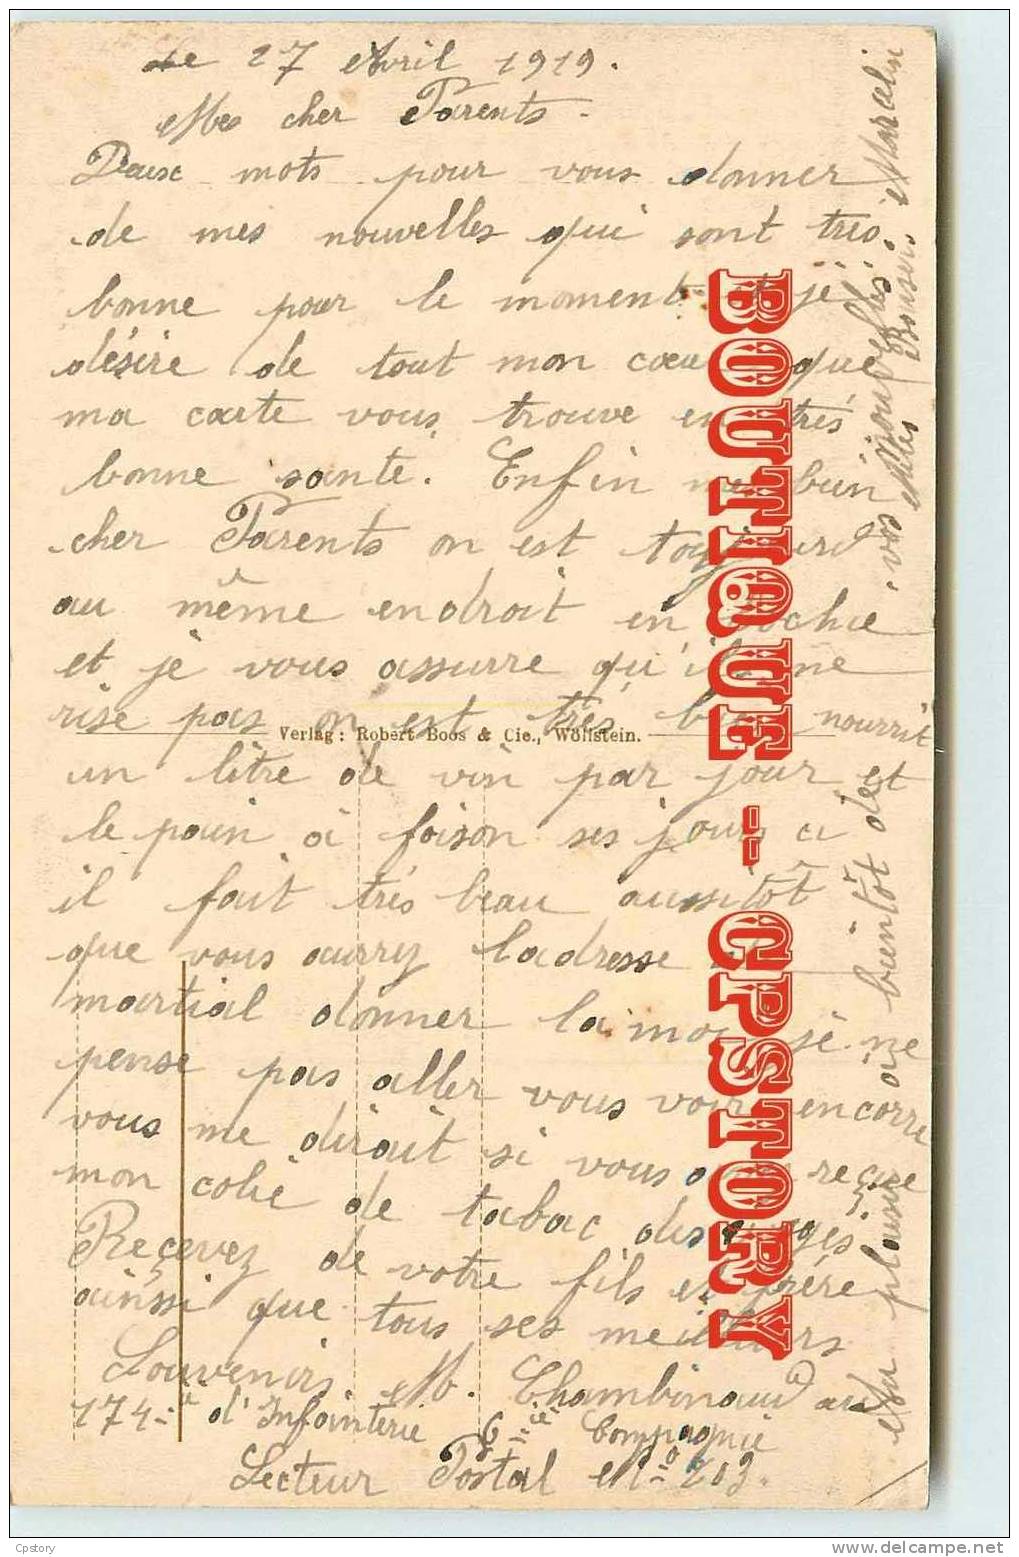 Le 27 Avril 1919.
Mes cher Parents.
Deux mots pour vous donner
de mes nouvelles qui sont très
bonne pour le moment et je
désire de tout mon cœur que
ma carte vous trouve en très
bonne sante. Enfin mes bien
cher Parents on est toujours
au même endroit en Bochie
et je vous assurre qu'il ne
rise pas on est très bien nourrit
Verlag: Robert Boos & Cie., Wöllstein.
un litre de vin par jour et
le pain à foison ses jours ci
il fait très beau aussitôt
que vous aurrez ladresse
martial donner la moi je ne
pense pas aller vous voir encorre
vous me dirait si vous reçue
mon colie de tabac
Reçevez de votre fils et frère
ainssi que tous ses meilleurs
Souvenirs M. Chambinaud au
174-è d'Infainterie 6-ié Compagnie
Secteur Postal N-o 203.
Au plaisir à bientôt de
vos nouvelles.
Milles Bonsers Marcelin
BOUTIQUE -- CPSTORY
Cpstory
delcampe.net